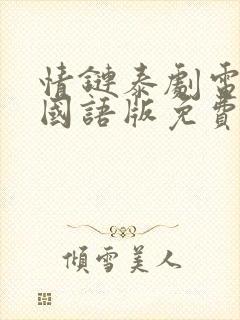 情鏈泰劇電
國語版免費
傾雪美人